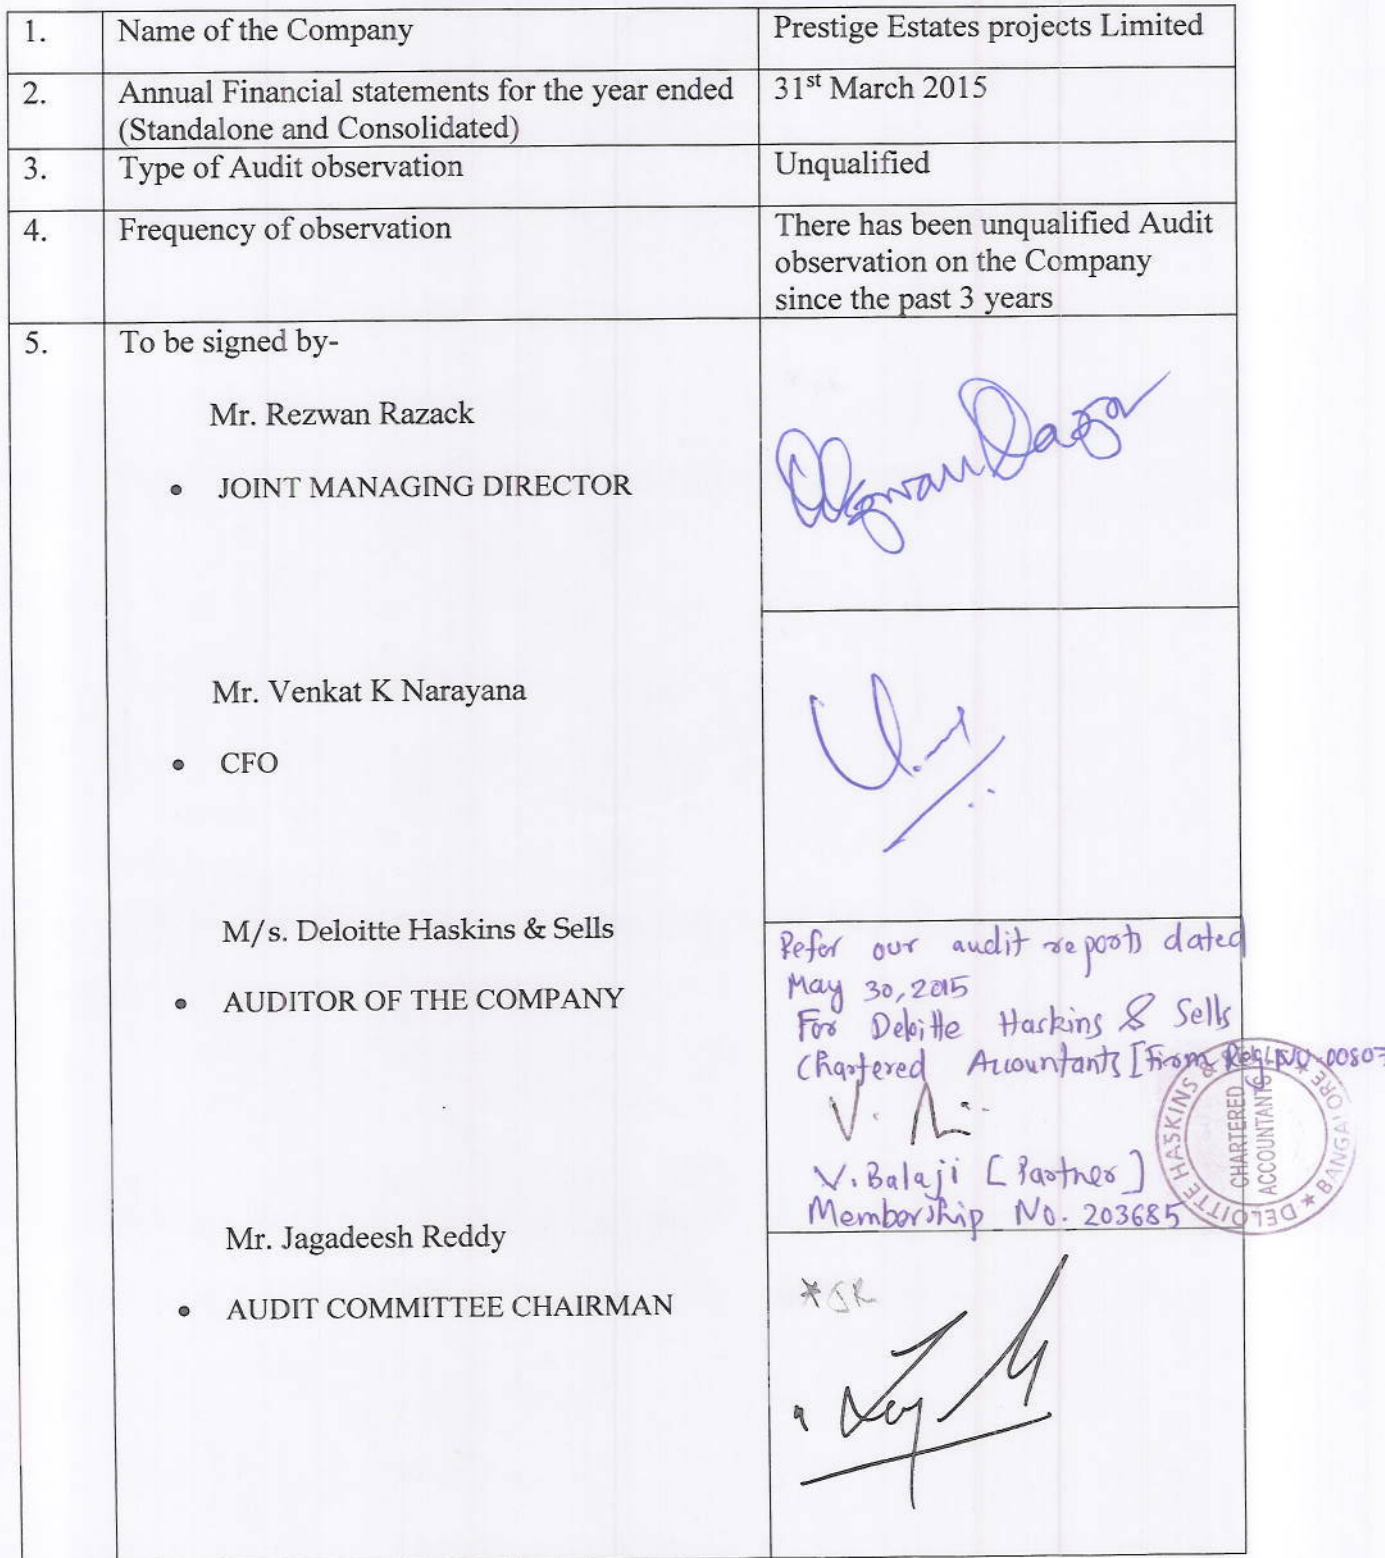 1. Name of the Company Prestige Estates projects Limited
2. Annual Financial statements for the year ended 31st March 2015
(Standalone and Consolidated)
3. Type of Audit observation Unqualified
4. Frequency of observation There has been unqualified Audit
observation on the Company
since the past 3 years
5. To be signed by-
Mr. Rezwan Razack
• JOINT MANAGING DIRECTOR
Mr. Venkat K Narayana
• CFO
M/s. Deloitte Haskins & Sells
• AUDITOR OF THE COMPANY
Refer our audit reports dated
May 30, 2015
For Deloitte Haskins & Sells
Chartered Accountants [Firm Reg. No. 00807
V. Balaji [Partner]
Membership No. 203685
DELOITTE HASKINS &
CHARTERED
ACCOUNTANTS
BANGALORE
Mr. Jagadeesh Reddy
• AUDIT COMMITTEE CHAIRMAN
*JR